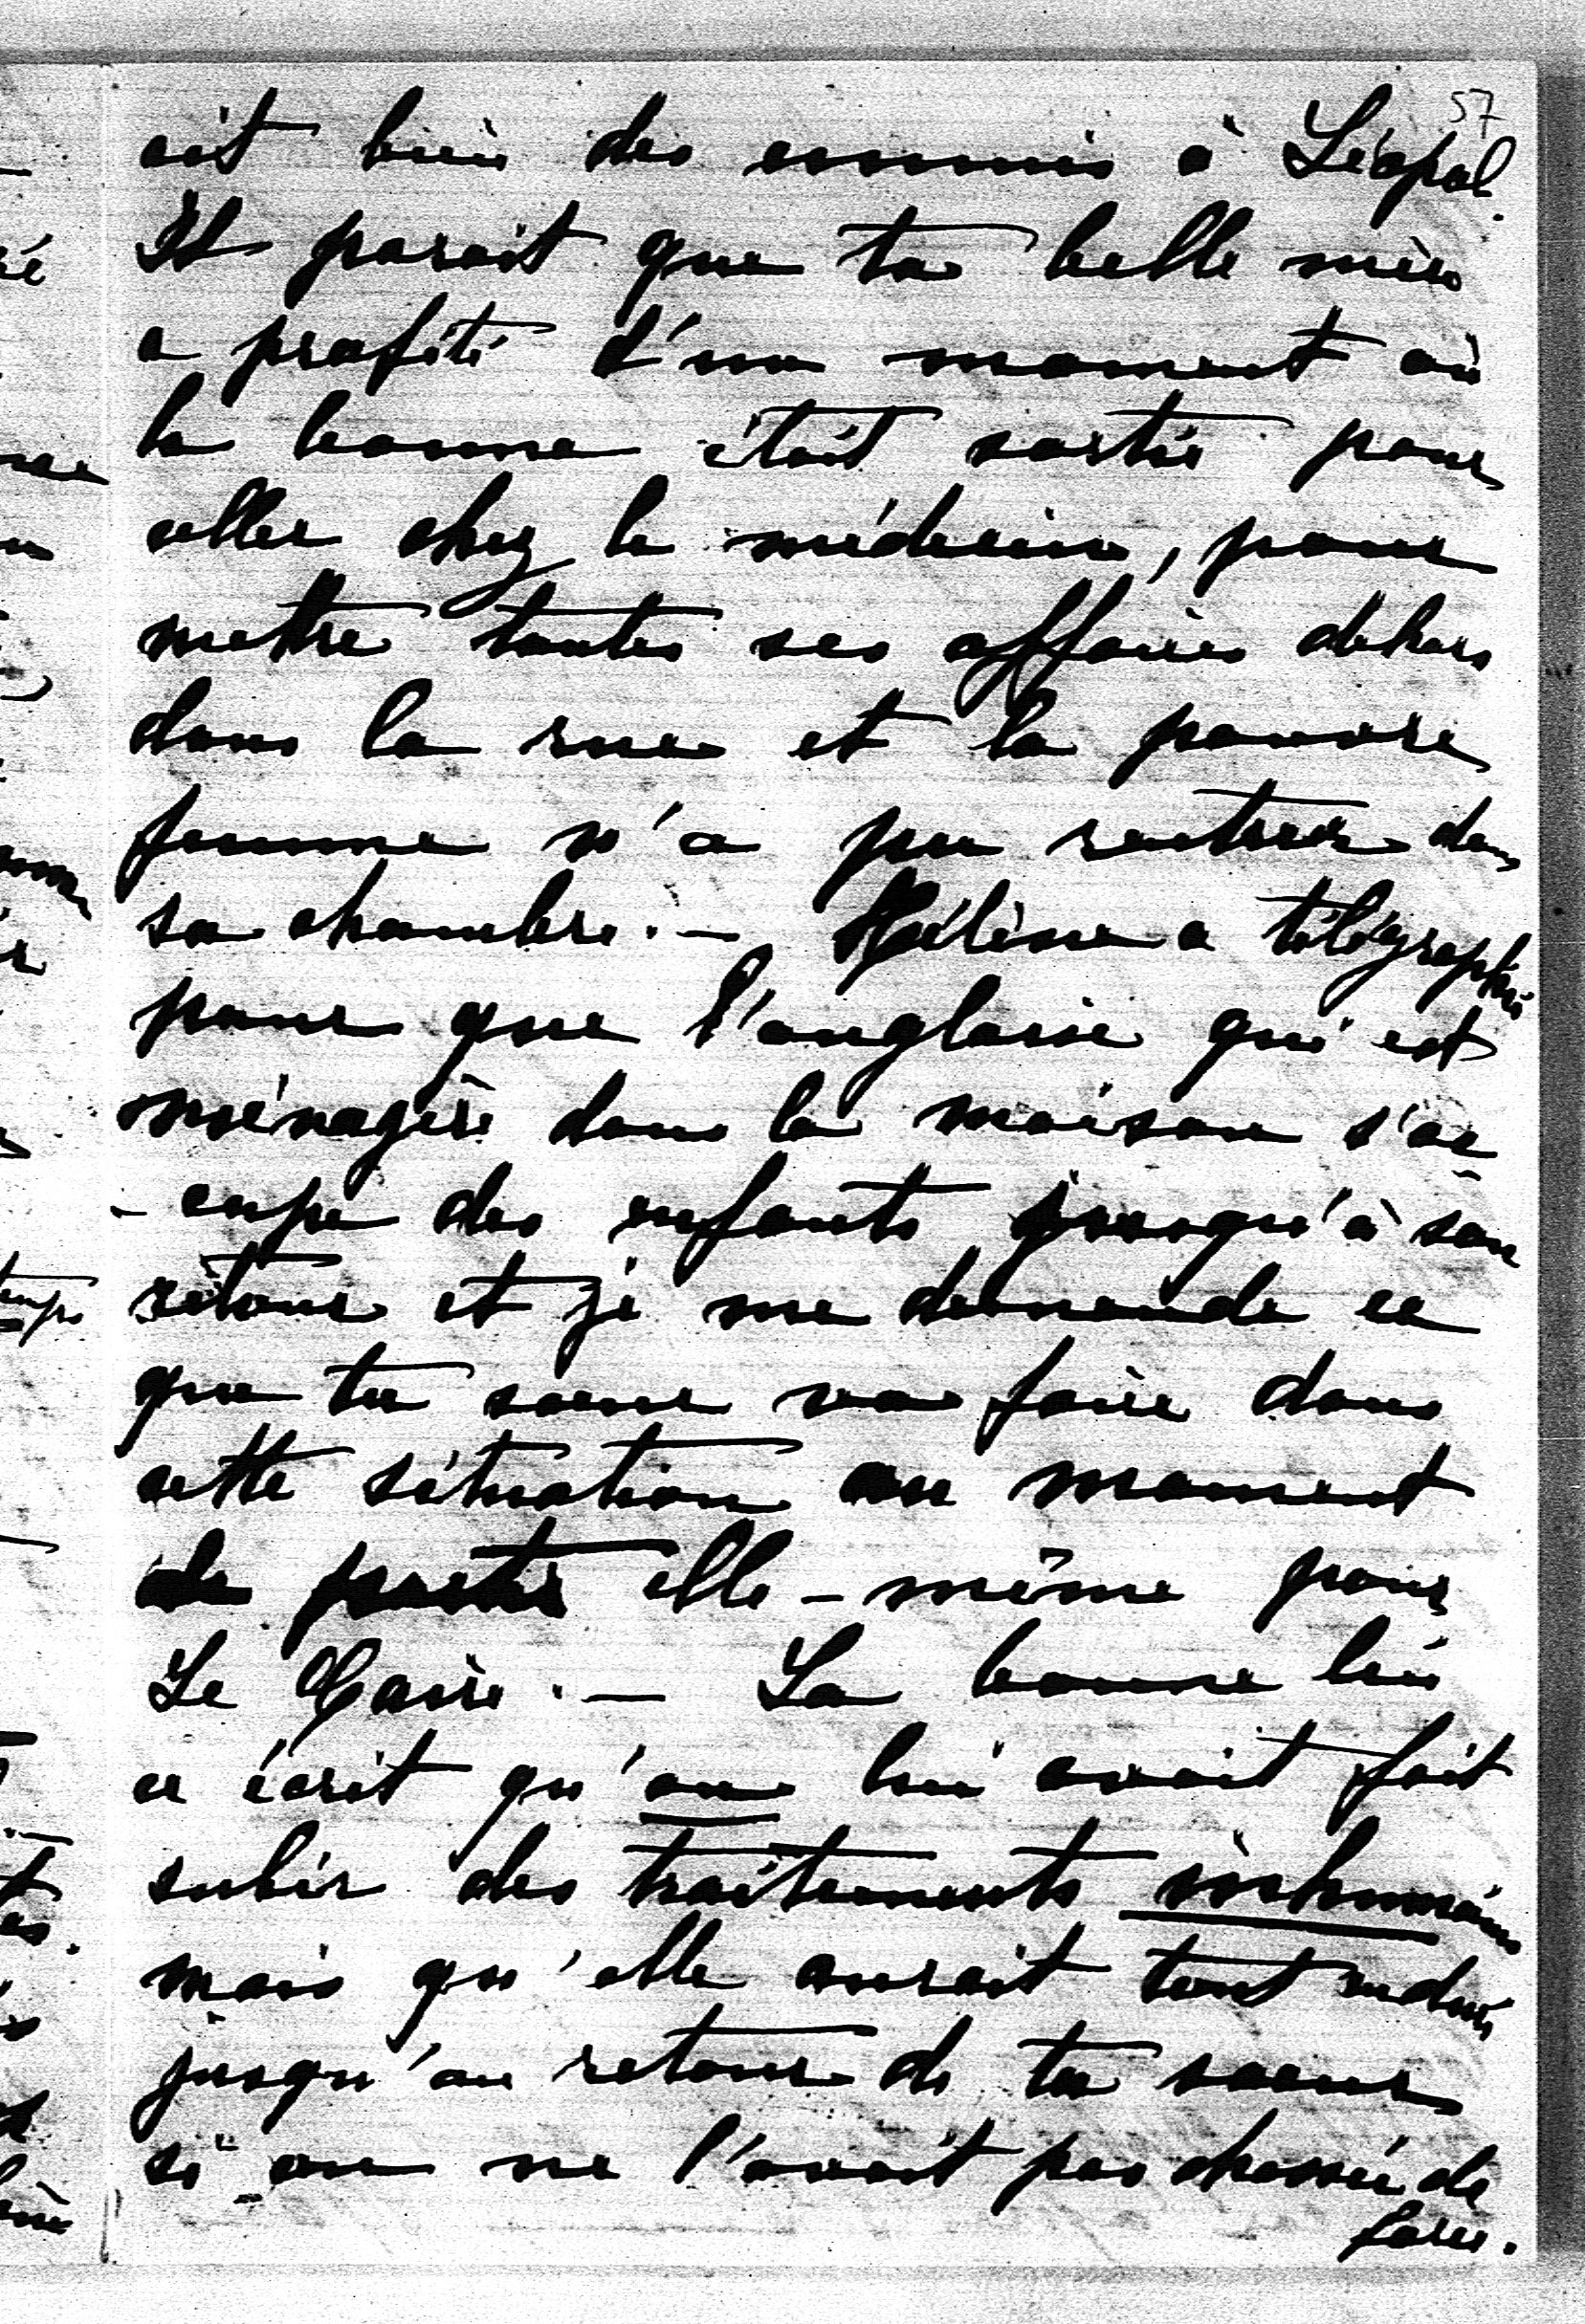 57
ait bien des ennuis à Léopol.
Il parait que ta belle mère
a profité d'un moment où
la bonne était sortie pour
aller chez le médecin, pour
mettre toutes ses affaires dehors
dans la rue et la pauvre
femme n'a pu rentrer dans
sa chambre. — Hélène a télégraphié
pour que l'anglaise qui est
ménagère dans la maison s'oc
- cupe des enfants jusqu'à son
retour et je me demande ce
que ta soeur va faire dans
cette situation au moment
de partir elle-même pour
Le Caire. — La bonne lui
a écrit qu'on lui avait fait
subir des traitements inhumains
mais qu'elle aurait tout enduré
jusqu'au retour de ta soeur
si on ne l'avait pas chassée de
force.